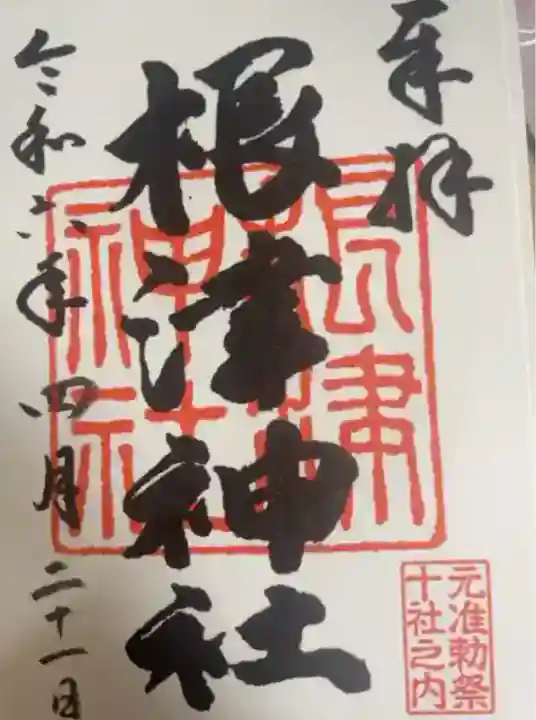 奉拝
根津神社
根津神社
令和六年四月二十一日
元准勅祭
十社之内